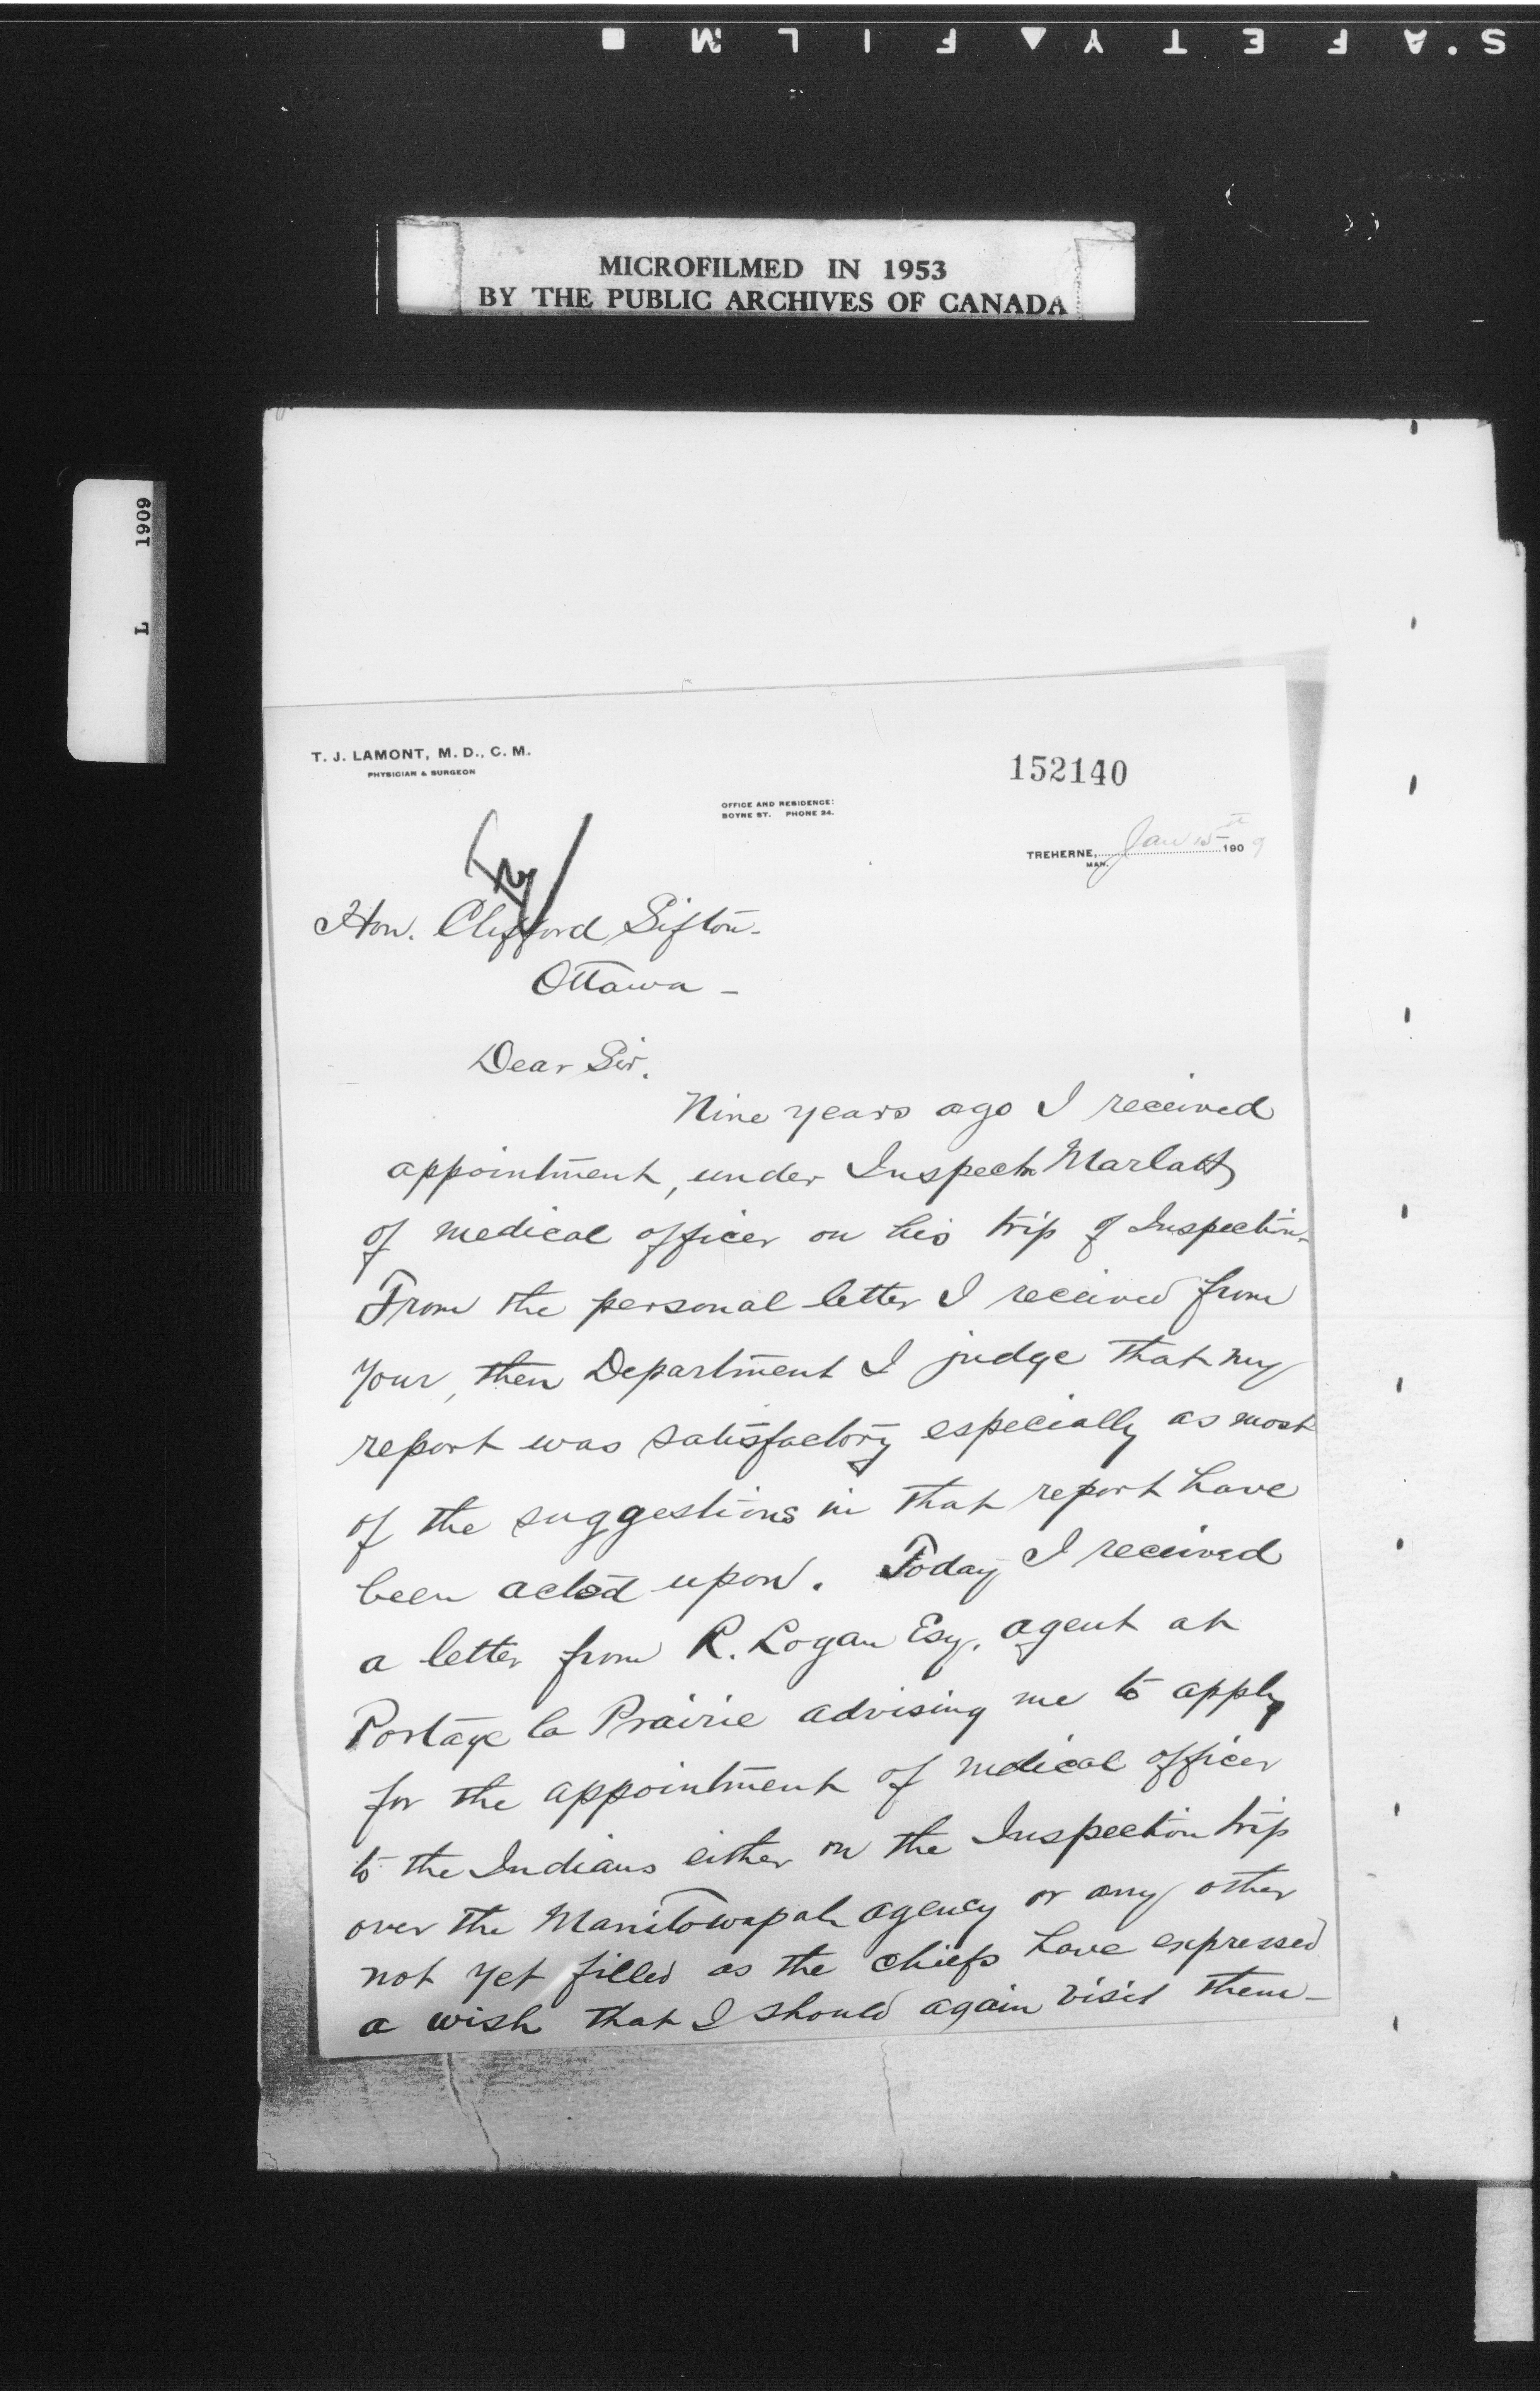 S·AFETY▲FILM■
MICROFILMED IN 1953
BY THE PUBLIC ARCHIVES OF CANADA
L 1909
T. J. LAMONT, M. D., C. M.
PHYSICIAN & SURGEON
152140
OFFICE AND RESIDENCE:
BOYNE ST. PHONE 24.
TREHERNE, Jan 15th 1909
MAN.
Hon. Clifford Sifton-
Ottawa -
Dear Sir.
Nine years ago I received
appointment, under Inspectr Marlatt
of medical officer on his trip of Inspection-
From the personal letter I received from
your, then Department I judge that my
report was satisfactory especially as most
of the suggestions in that report have
been acted upon. Today I received
a letter from R. Logan Esq. agent at
Portage la Prairie advising me to apply
for the appointment of medical officer
to the Indians either on the Inspection trip
over the Manitowapah agency or any other
not yet filled as the chiefs have expressed
a wish that I should again visit them-